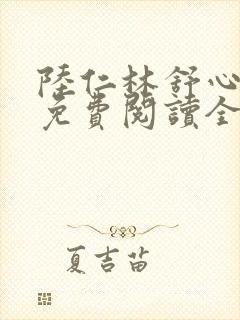 陸仁林舒心
免費閱讀全
夏吉苗